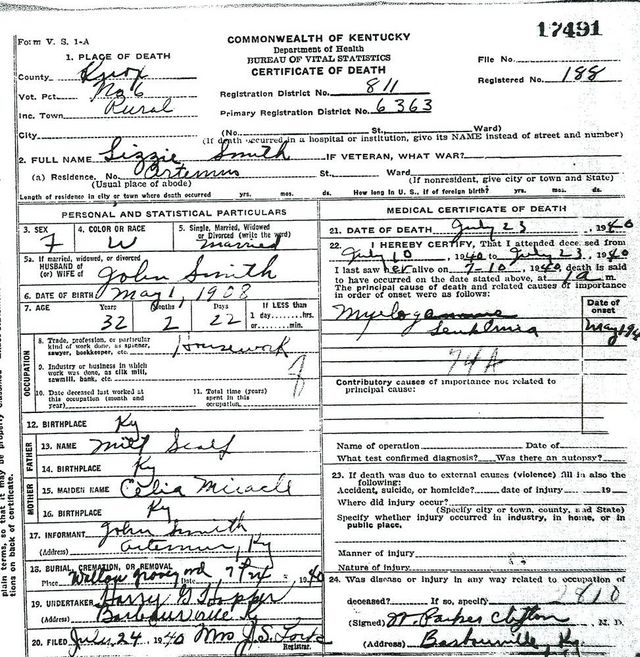 17491
Form V. S. 1-A
COMMONWEALTH OF KENTUCKY
Department of Health
BUREAU OF VITAL STATISTICS
CERTIFICATE OF DEATH
File No.
Registered No. 188
1. PLACE OF DEATH
County Knox
Vot. Pct. No 6
Inc. Town Rural
Registration District No. 811
Primary Registration District No. 6363
City (No. St. Ward)
(If death occurred in a hospital or institution, give its NAME instead of street and number)
2. FULL NAME Lizzie Smith IF VETERAN, WHAT WAR?
(a) Residence. No. Artemus St. Ward
(Usual place of abode) (If nonresident, give city or town and State)
Length of residence in city or town where death occurred yrs. mos. ds. How long in U. S., if of foreign birth? yrs. mos. ds.
PERSONAL AND STATISTICAL PARTICULARS
3. SEX F
4. COLOR OR RACE W
5. Single, Married, Widowed or Divorced (write the word) Married
5a. If married, widowed, or divorced
HUSBAND of
(or) WIFE of John Smith
6. DATE OF BIRTH May 1, 1908
7. AGE Years 32 Months 2 Days 22 If LESS than
1 day hrs.
or min.
OCCUPATION
8. Trade, profession, or particular
kind of work done, as spinner,
sawyer, bookkeeper, etc. Housework
9. Industry or business in which
work was done, as silk mill,
sawmill, bank, etc.
10. Date deceased last worked at
this occupation (month and
year)
11. Total time (years)
spent in this
occupation
12. BIRTHPLACE Ky
FATHER
13. NAME Milt Scalf
14. BIRTHPLACE Ky
MOTHER
15. MAIDEN NAME Celia Miracle
16. BIRTHPLACE Ky
17. INFORMANT John Smith
(Address) Artemus, Ky
18. BURIAL, CREMATION, OR REMOVAL
Place Date 1940
19. UNDERTAKER Harry G Hopper
(Address) Barbourville Ky
20. FILED July 24 1940 Mrs J. S.
Registrar.
MEDICAL CERTIFICATE OF DEATH
21. DATE OF DEATH July 23, 1940
22. I HEREBY CERTIFY, That I attended deceased from
July 10, 1940 to July 23, 1940
I last saw her alive on 7-10, 1940, death is said
to have occurred on the date stated above, at m.
The principal cause of death and related causes of importance
in order of onset were as follows:
Date of
onset
Leukemia
74A
Contributory causes of importance not related to
principal cause:
Name of operation Date of
What test confirmed diagnosis? Was there an autopsy?
23. If death was due to external causes (violence) fill in also the
following:
Accident, suicide, or homicide? date of injury 19
Where did injury occur?
(Specify city or town, county, and State)
Specify whether injury occurred in industry, in home, or in
public place.
Manner of injury
Nature of injury
24. Was disease or injury in any way related to occupation of
deceased? If so, specify 2810
(Signed) W. Parker Clifton M. D.
(Address) Barbourville, Ky
plain terms, so that it may be properly classified
tions on back of certificate.